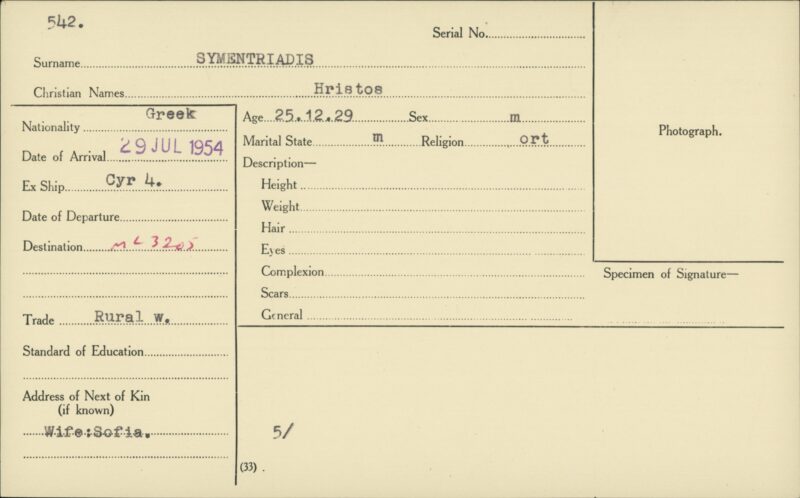 542.
Serial No.
Surname SYMENTRIADIS
Christian Names Hristos
Nationality Greek
Date of Arrival 29 JUL 1954
Ex Ship Cyr 4.
Date of Departure
Destination ML 3205
Trade Rural w.
Standard of Education
Address of Next of Kin
(if known)
Wife:Sofia.
Age 25.12.29 Sex m
Marital State m Religion ort
Description—
Height
Weight
Hair
Eyes
Complexion
Scars
General
5/
(33) .
Photograph.
Specimen of Signature—